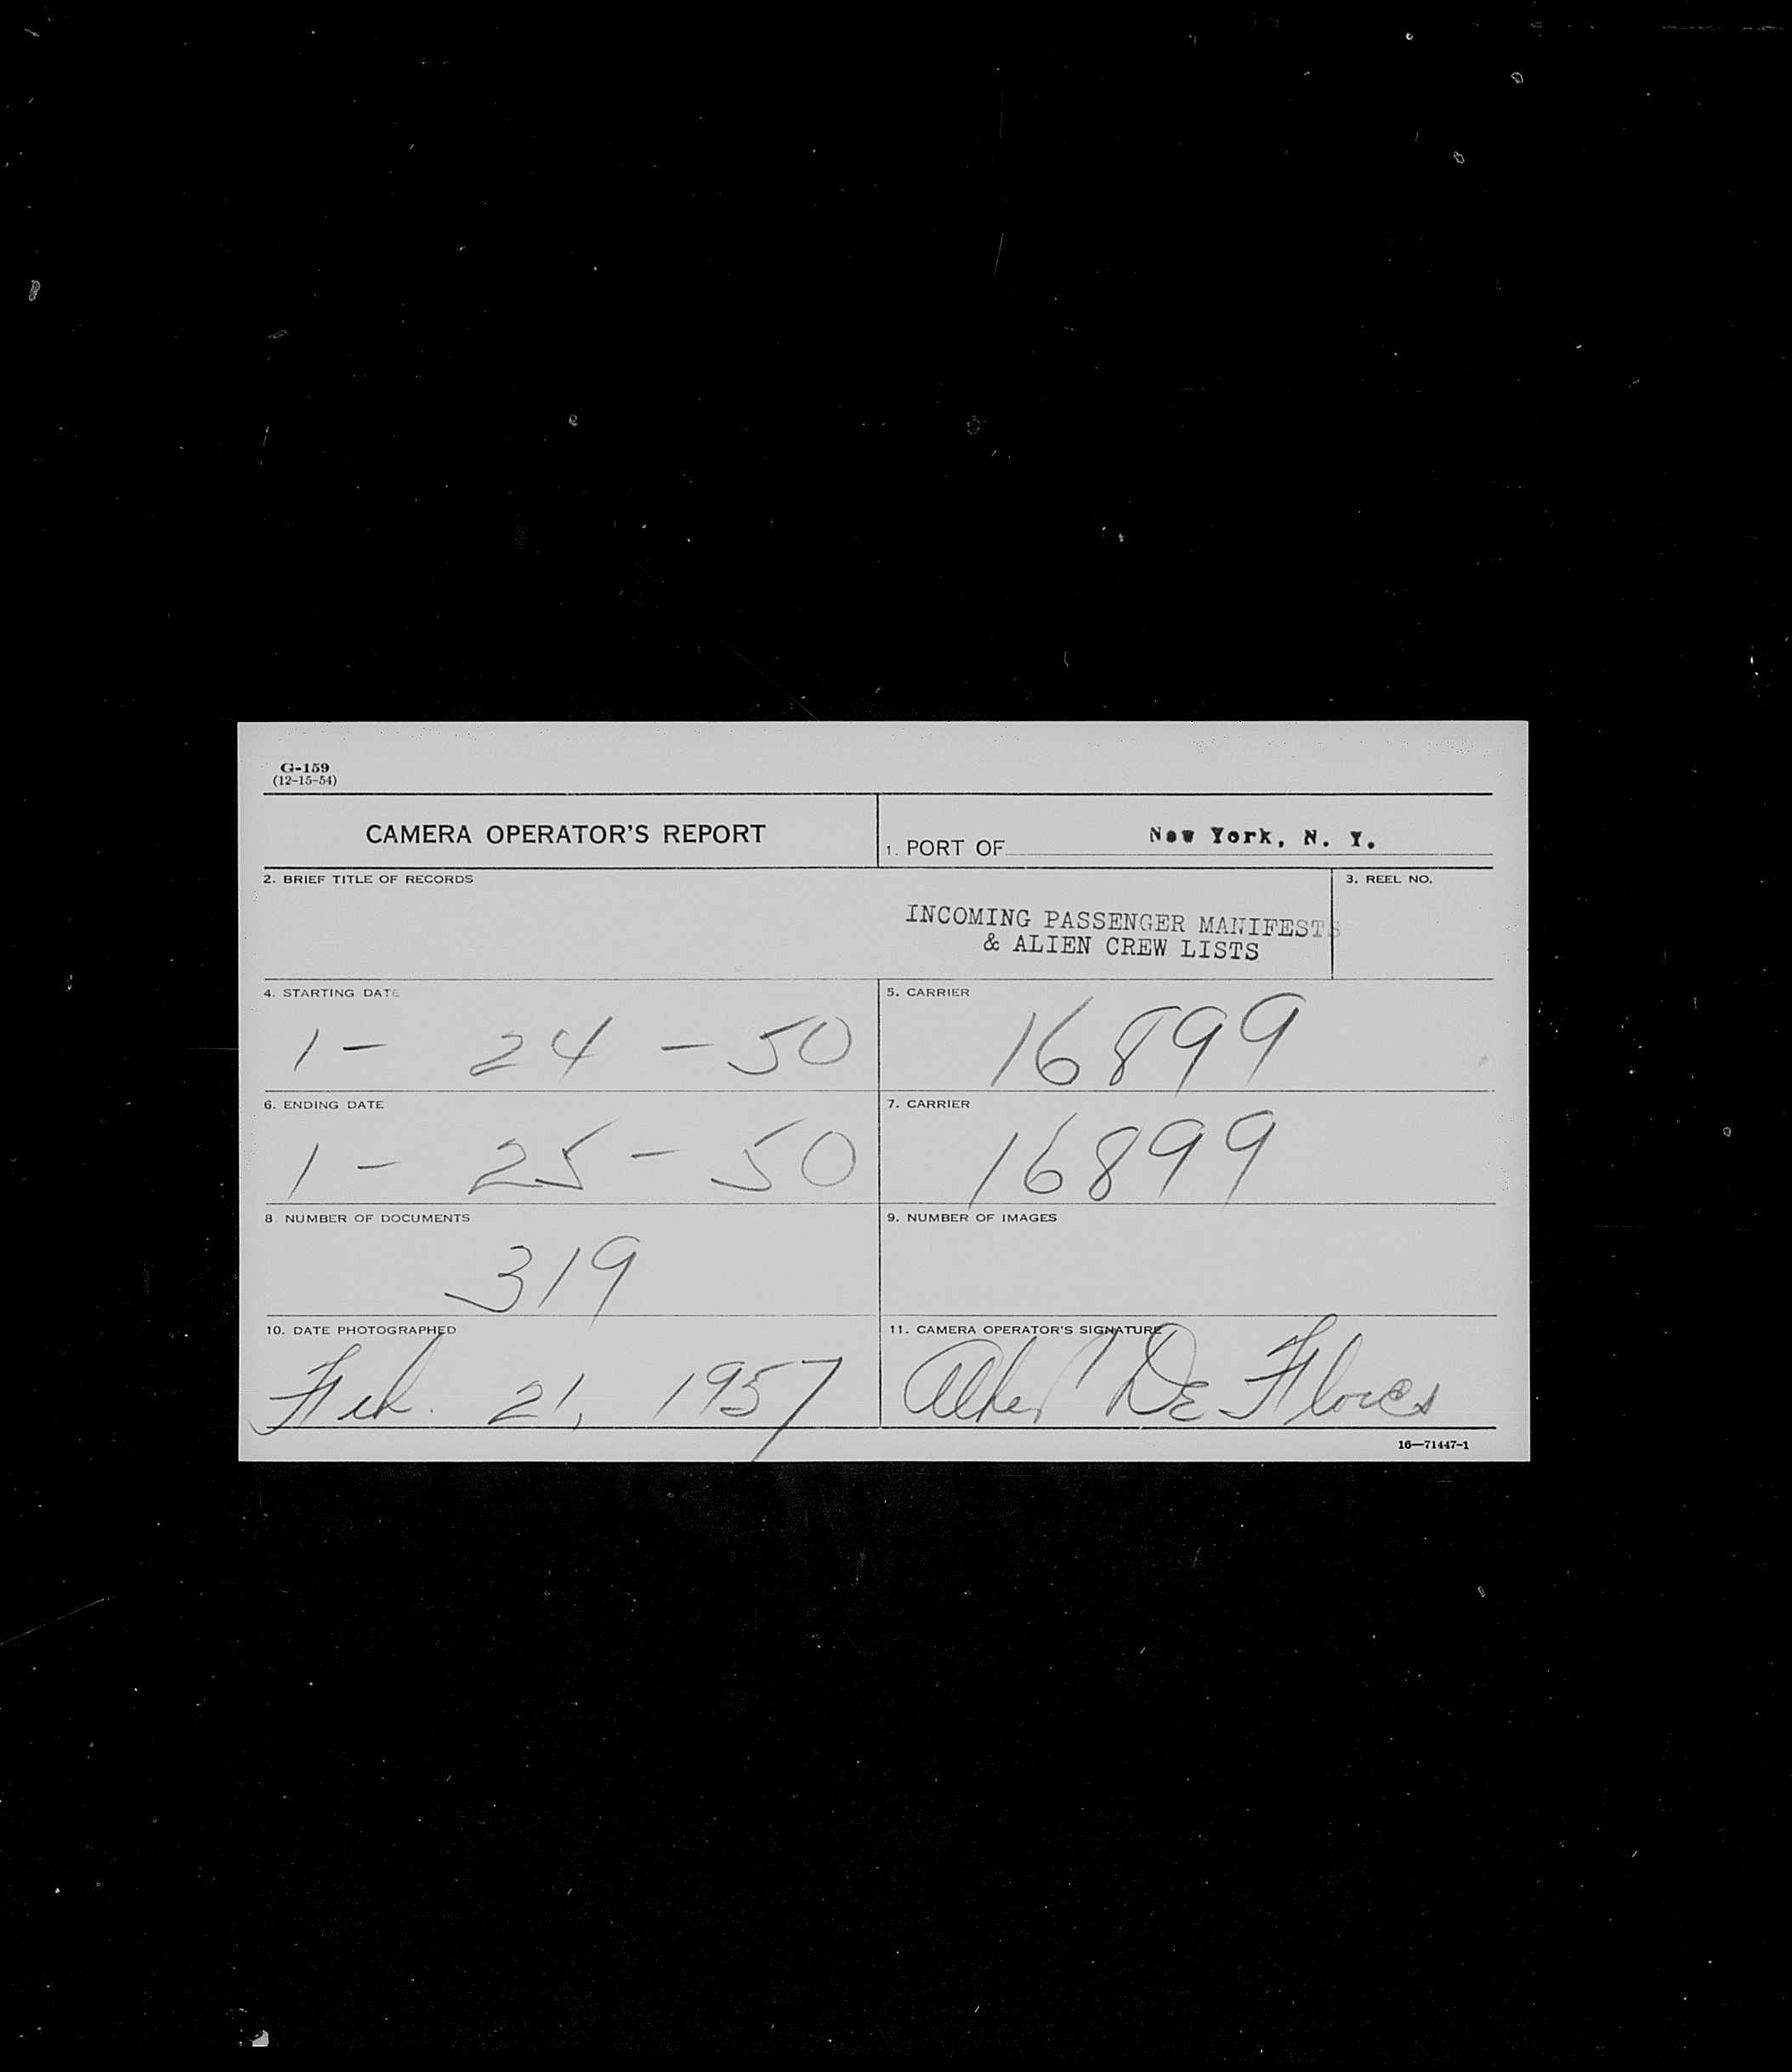 G-159
(12-15-54)
CAMERA OPERATOR'S REPORT
1. PORT OF New York, N. Y.
2. BRIEF TITLE OF RECORDS
INCOMING PASSENGER MANIFESTS
& ALIEN CREW LISTS
3. REEL NO.
4. STARTING DATE
1 - 24 - 50
5. CARRIER
16899
6. ENDING DATE
1 - 25 - 50
7. CARRIER
16899
8. NUMBER OF DOCUMENTS
319
9. NUMBER OF IMAGES
10. DATE PHOTOGRAPHED
Feb. 21, 1957
11. CAMERA OPERATOR'S SIGNATURE
Albert De Flores
16—71447-1